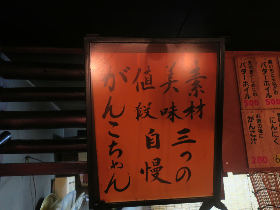 素材
三つの
美味
自慢
値段
がんこちゃん
バターホイル
500
バターホイル
500
にんにく
がんこ汁
200